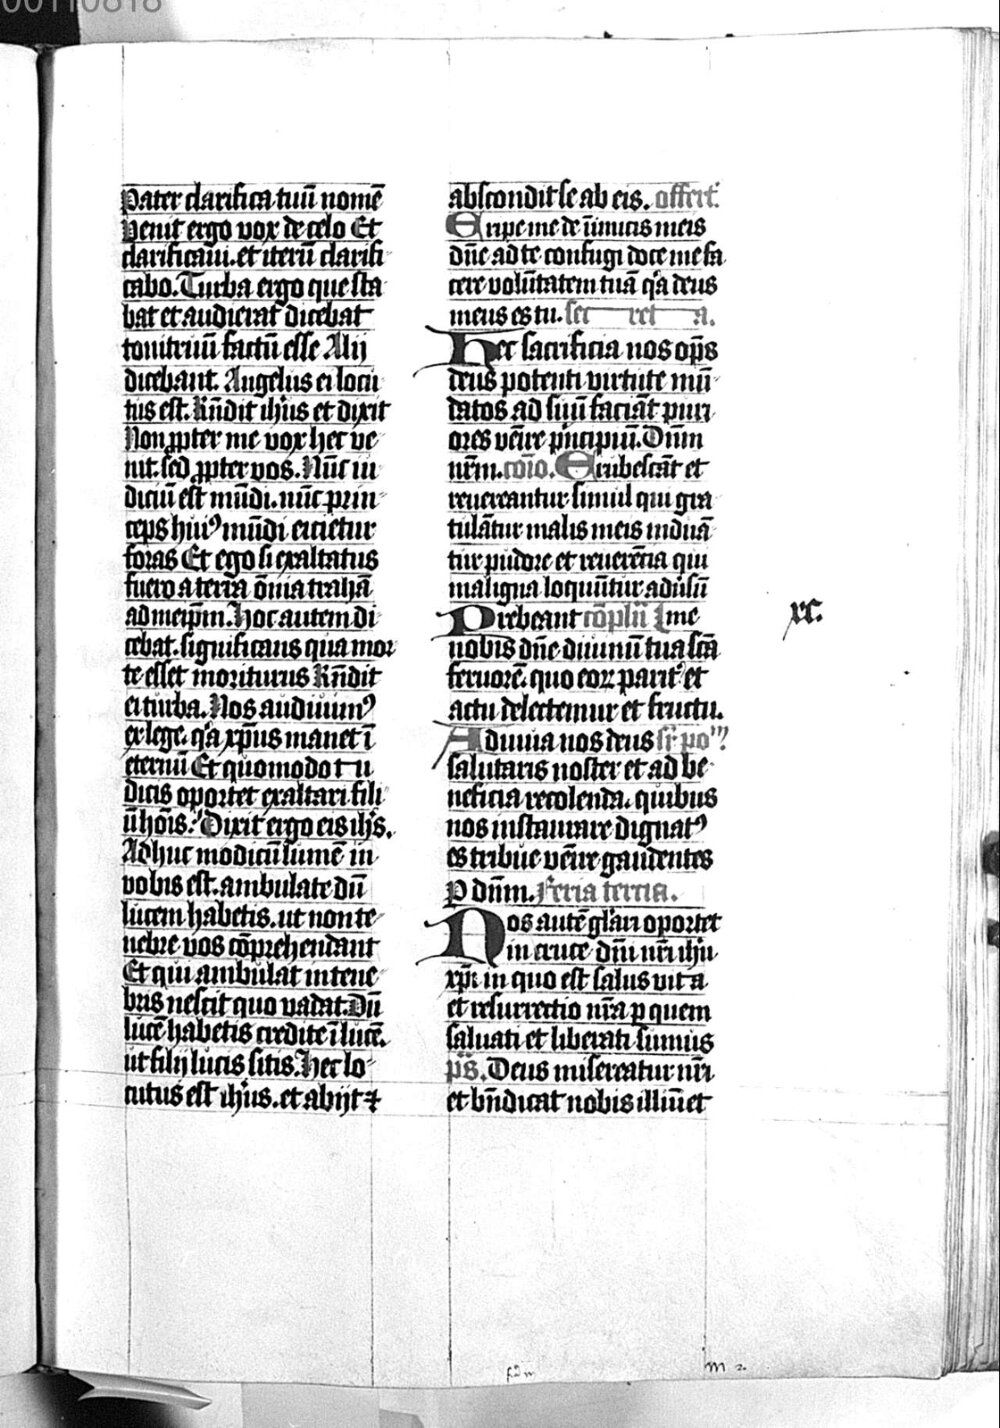 00110818
Pater clarifica tuū nomē
Venit ergo vox de celo Et
clarificaui. et iterū clarifi
cabo. Turba ergo que sta
bat et audierat dicebat
tonitruū factū esse Alij
dicebant. Angelus ei locu
tus est. Rn̄dit ih̄us et dixit
Non ꝓpter me vox hec ve
nit. sed ꝓpter vos. Nūc iu
diciū est mūdi. nūc prin
ceps huiꝰ mūdi eicietur
foras Et ego si exaltatus
fuero a terra ōmia trahā
ad meip̄m. Hoc autem di
cebat. significans qua mor
te esset moriturus Rn̄dit
ei turba. Nos audiuimꝰ
ex lege. q̄a xp̄us manet ī
eternū Et quomodo tu
dicis oportet exaltari fili
ū hōis. Dixit ergo eis ih̄s.
Adhuc modicū lumē in
vobis est. ambulate dū
lucem habetis. ut non te
nebre vos cōprehendant
Et qui ambulat in tene
bris nescit quo vadat. Dū
lucē habetis credite ī lucē.
ut filij lucis sitis. Hec lo
cutus est ih̄us. et abijt ⁊
abscondit se ab eis. offert̄.
Eripe me de īimicis meis
dn̄e ad te confugi doce me fa
cere volūtatem tuā q̄a deus
meus es tu. sec ret a.
Hec sacrificia nos op̄s
deus potenti virtute mū
datos ad suū faciāt puri
ores veīre p̄ncipiū. Dn̄m
nr̄m. cōio. Erubescāt et
reuereantur simul qui gra
tulātur malis meis induā
tur pudore et reuerētia qui
maligna loquūtur adusū
Prebeant cōpluī me
nobis dn̄e diuinū tua scā
feruorē. quo eoꝝ parit̄ et
actu delectemur et fructu.
Adiuua nos deus sr̄ po
salutaris noster et ad be
neficia recolenda. quibus
nos instaurare dignatꝰ
es tribue veīre gaudentes
ꝑ dn̄m. Feria tercia.
Nos autē gl̄ari oportet
in cruce dn̄i nr̄i ih̄u
xp̄i in quo est salus vita
et resurrectio nr̄a ꝑ quem
saluati et liberati sumus
p̄s. Deus misereatur nr̄i
et bn̄dicat nobis illūiet
xc.
m 2.